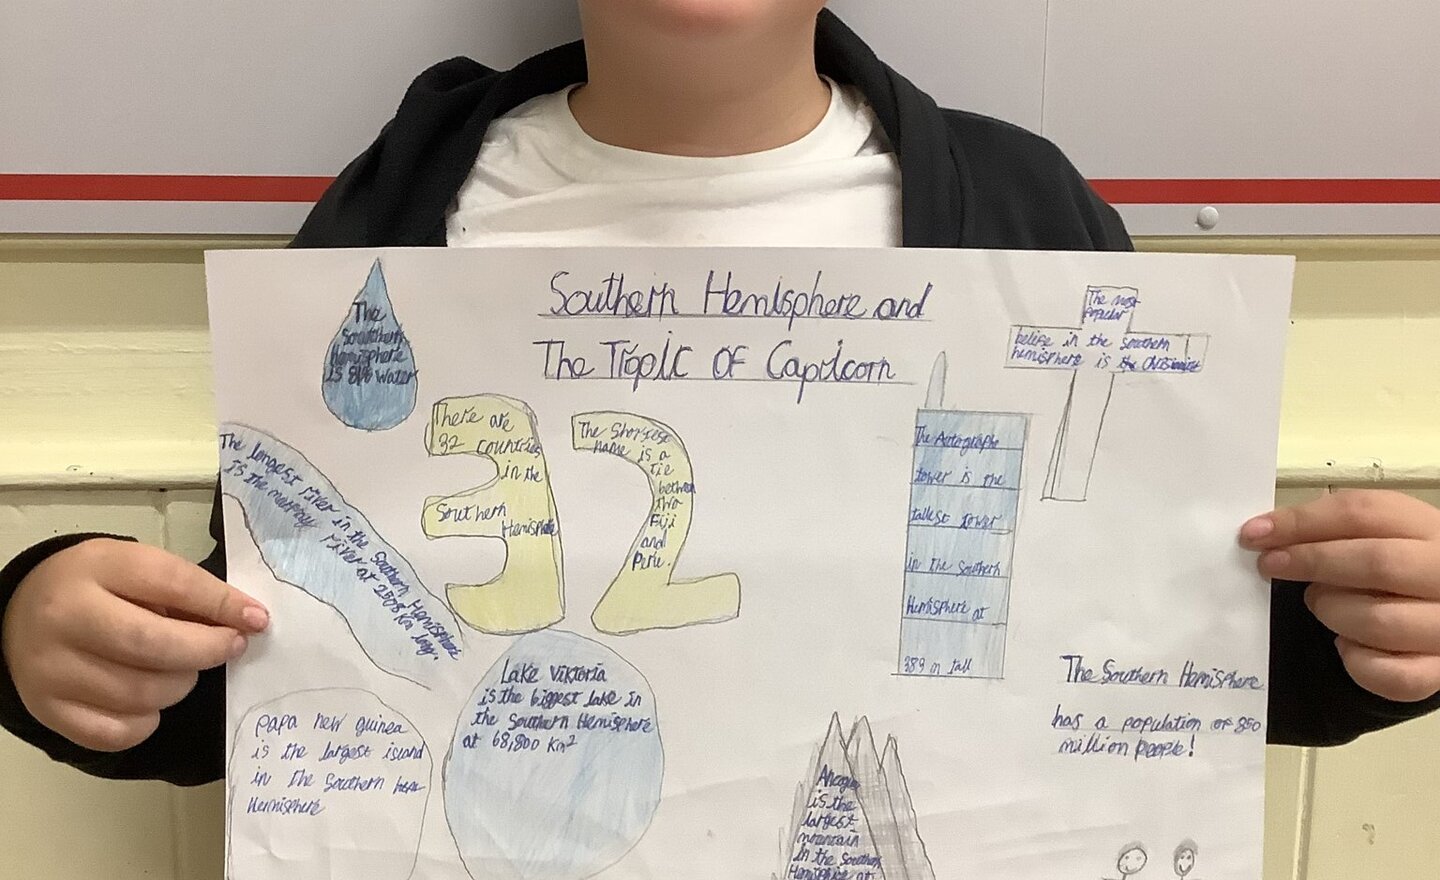 Southern Hemisphere and
The Tropic Of Capricorn
The
Southern
Hemisphere
is 81% water
There are
32 countries
in the
Southern
Hemisphere
The Shortest
name is a
tie
between
two
Fiji
and
Peru.
The most
popular
beleife in the Southern
hemisphere is the
The longest river in the Southern Hemisphere
is the murray river at 2508 Km long.
The Autographe
tower is the
tallest tower
in the Southern
Hemisphere at
383 m tall
Lake Viktoria
is the biggest lake in
the Southern Hemisphere
at 68,800 Km²
papa new guinea
is the largest island
in the Southern
Hemisphere
The Southern Hemisphere
has a population of 850
million people!
is the
largest
mountain
in the Southern
at